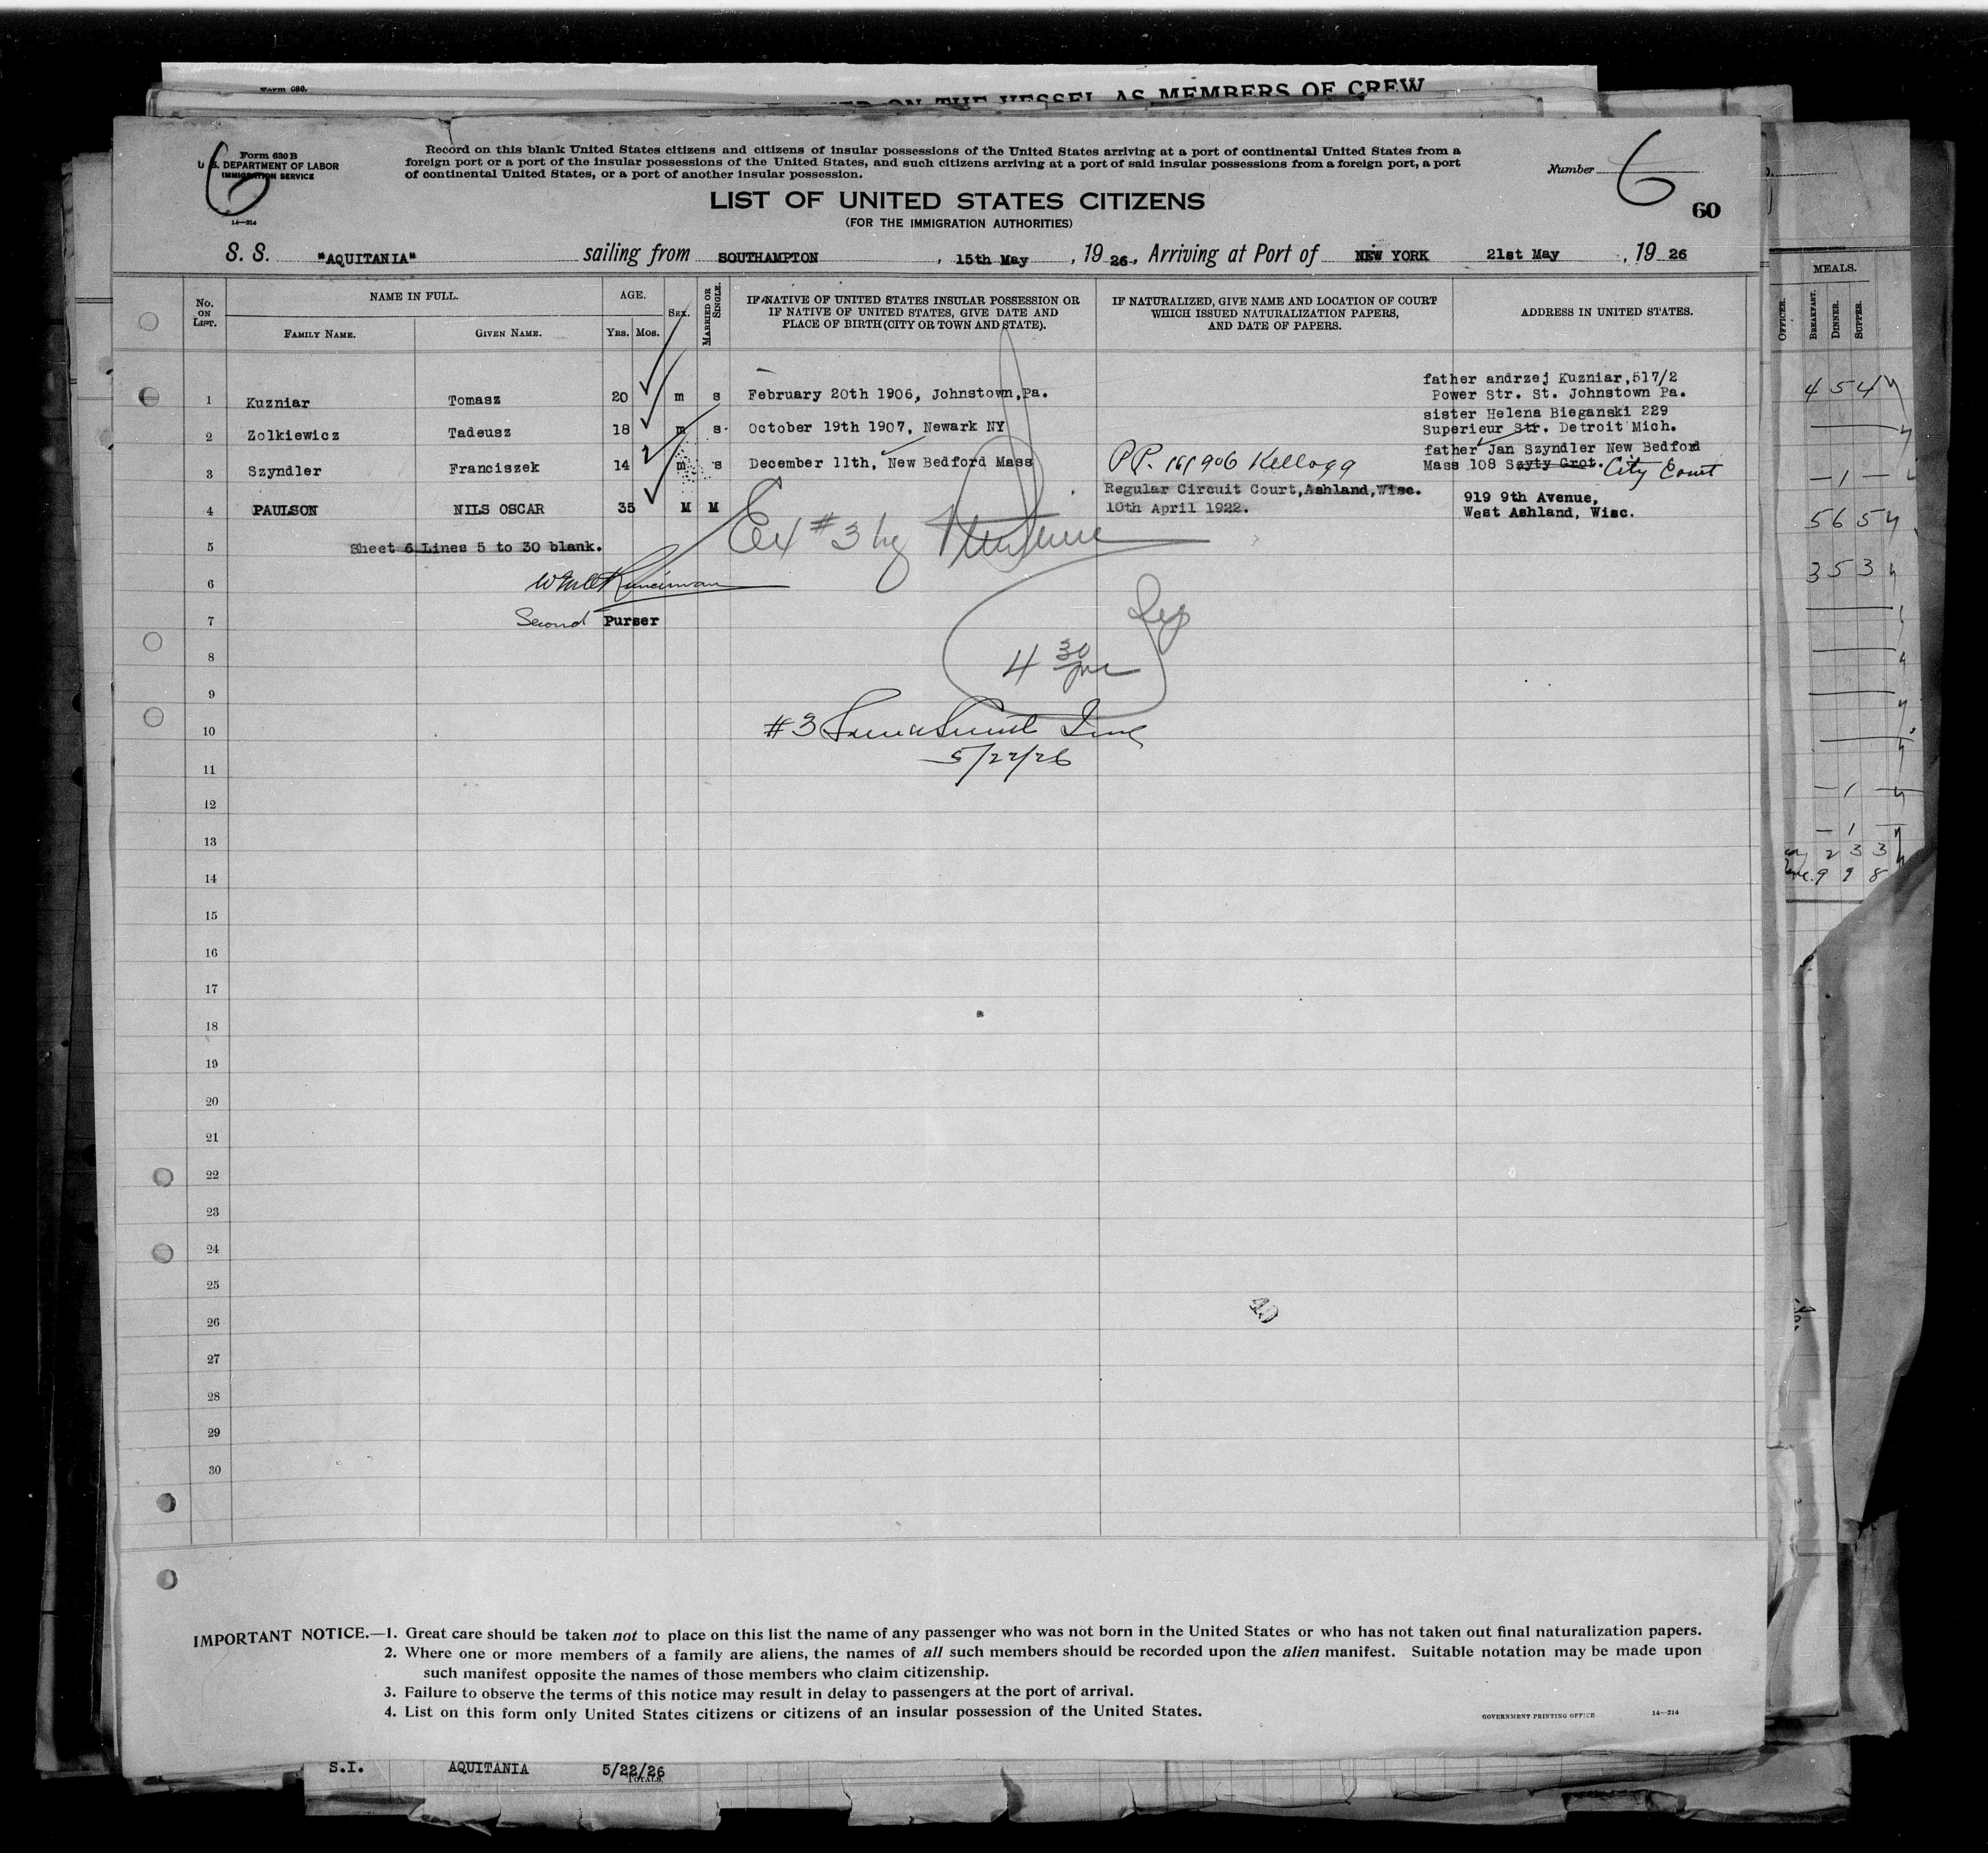 Form 680.
ED ON THE VESSEL AS MEMBERS OF CREW
Form 630 B
U. S. DEPARTMENT OF LABOR
IMMIGRATION SERVICE
14—214
6
Record on this blank United States citizens and citizens of insular possessions of the United States arriving at a port of continental United States from a
foreign port or a port of the insular possessions of the United States, and such citizens arriving at a port of said insular possessions from a foreign port, a port
of continental United States, or a port of another insular possession.
Number 6
60
LIST OF UNITED STATES CITIZENS
(FOR THE IMMIGRATION AUTHORITIES)
S. S. "AQUITANIA" sailing from SOUTHAMPTON, 15th May, 1926., Arriving at Port of NEW YORK 21st May, 1926
No. ON LIST.
NAME IN FULL.
FAMILY NAME.
GIVEN NAME.
AGE.
YRS. MOS.
SEX.
MARRIED OR SINGLE.
IF NATIVE OF UNITED STATES INSULAR POSSESSION OR
IF NATIVE OF UNITED STATES, GIVE DATE AND
PLACE OF BIRTH (CITY OR TOWN AND STATE).
IF NATURALIZED, GIVE NAME AND LOCATION OF COURT
WHICH ISSUED NATURALIZATION PAPERS,
AND DATE OF PAPERS.
ADDRESS IN UNITED STATES.
1 Kuzniar Tomasz 20 m s February 20th 1906, Johnstown,Pa. father andrzej Kuzniar,517/2
Power Str. St. Johnstown Pa.
2 Zolkiewicz Tadeusz 18 m s October 19th 1907, Newark NY sister Helena Bieganski 229
Superieur Str. Detroit Mich.
3 Szyndler Franciszek 14 m s December 11th, New Bedford Mass PP. 161906 Kellogg father Jan Szyndler New Bedford
Mass 108 Szyty Grot. City Court
4 PAULSON NILS OSCAR 35 M M Regular Circuit Court,Ashland,Wisc.
10th April 1922.
919 9th Avenue,
West Ashland, Wisc.
5 Sheet 6 Lines 5 to 30 blank.
Ex #3 by
6
7 Second Purser
8
4 30 pm
9
10 #3
5/22/26
11
12
13
14
15
16
17
18
19
20
21
22
23
24
25
26
27
28
29
30
IMPORTANT NOTICE.—1. Great care should be taken not to place on this list the name of any passenger who was not born in the United States or who has not taken out final naturalization papers.
2. Where one or more members of a family are aliens, the names of all such members should be recorded upon the alien manifest. Suitable notation may be made upon
such manifest opposite the names of those members who claim citizenship.
3. Failure to observe the terms of this notice may result in delay to passengers at the port of arrival.
4. List on this form only United States citizens or citizens of an insular possession of the United States.
GOVERNMENT PRINTING OFFICE
14—214
S.I. AQUITANIA 5/22/26
TOTALS
MEALS.
OFFICER.
BREAKFAST.
DINNER.
SUPPER.
4 5 4
— 1 —
5 6 5
3 5 3
— 1 —
— 1 —
2 3 3
9 9 8